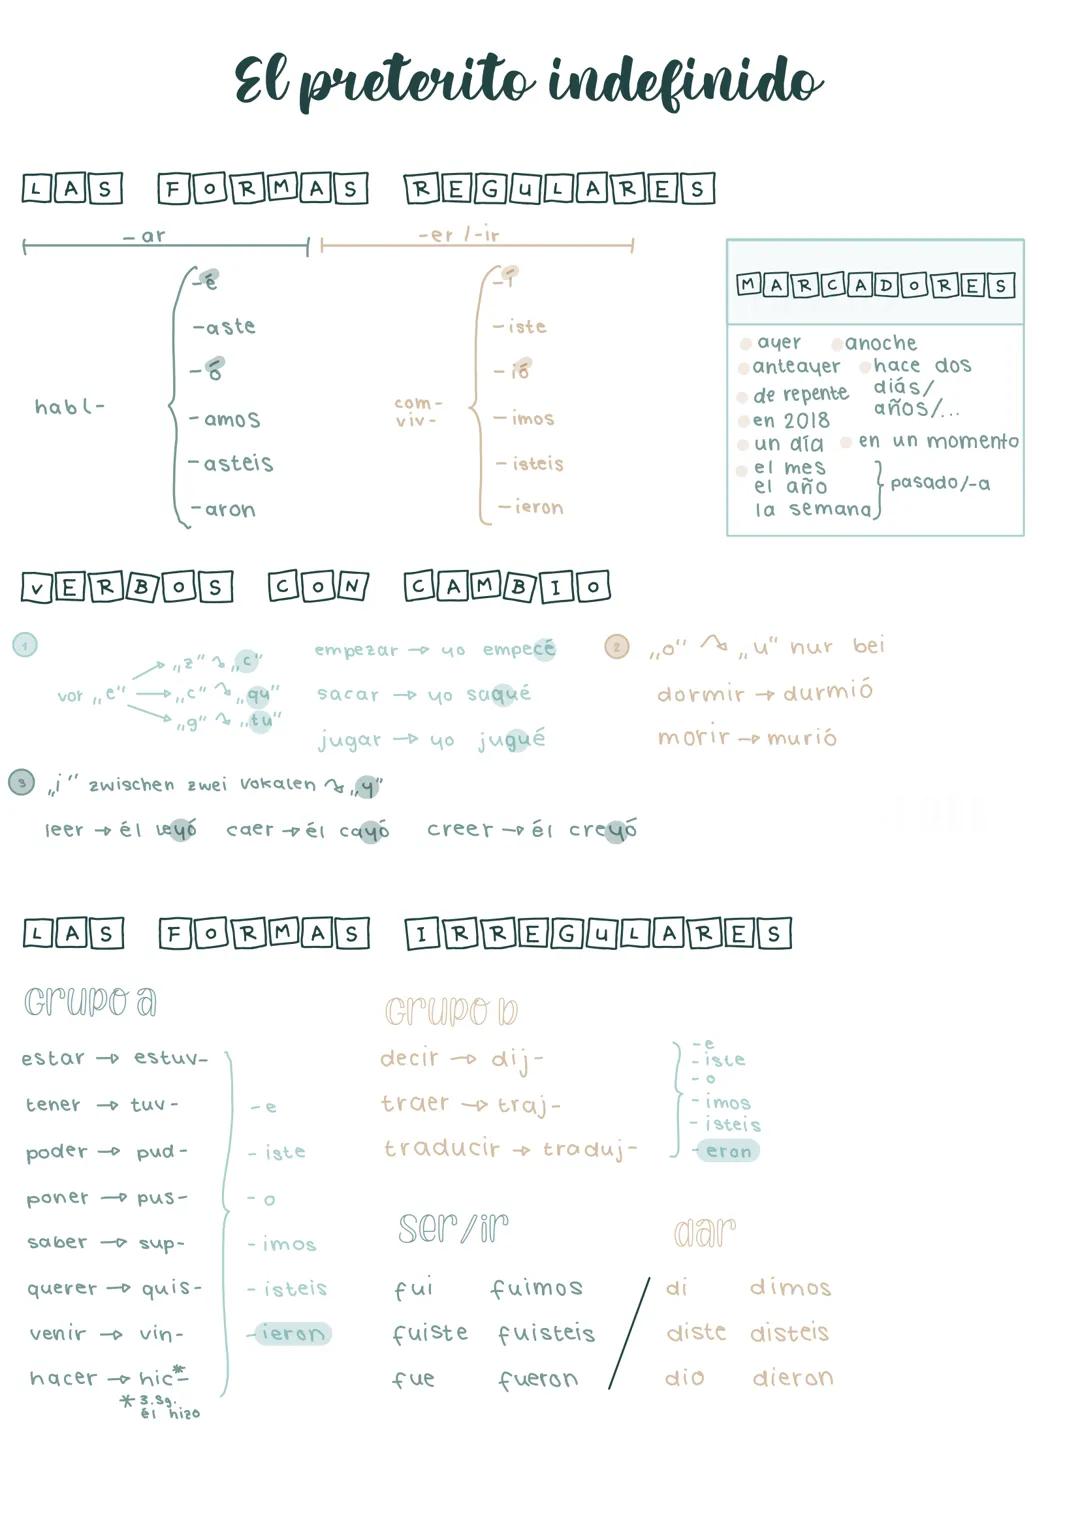 El preterito indefinido
LAS FORMAS REGULARES
-ar
-er /-ir
habl-
-é
-aste
-ó
-amos
-asteis
-aron
com-
viv-
-í
-iste
-ió
-imos
-isteis
-ieron
MARCADORES
ayer anoche
anteayer hace dos
diás/
años/...
de repente
en 2018
un día en un momento
el mes
el año
la semana
pasado/-a
VERBOS CON CAMBIO
1
vor „e"
„z" ↝ „c"
„c" ↝ „qu"
„g" ↝ „tu"
empezar → yo empecé
sacar → yo saqué
jugar → yo jugué
2 „o" ↝ „u" nur bei
dormir → durmió
morir → murió
3 „i" zwischen zwei Vokalen ↝ „y"
leer → él leyó caer → él cayó creer → él creyó
LAS FORMAS IRREGULARES
Grupo a
estar → estuv-
tener → tuv-
poder → pud-
poner → pus-
saber → sup-
querer → quis-
venir → vin-
hacer → hic*-
* 3.Sg.
él hizo
-e
-iste
-o
-imos
-isteis
-ieron
Grupo b
decir → dij-
traer → traj-
traducir → traduj-
-e
-iste
-o
-imos
-isteis
-eron
ser/ir
fui fuimos
fuiste fuisteis
fue fueron
dar
di dimos
diste disteis
dio dieron